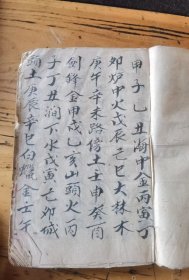 甲子乙丑海中金丙寅丁
卯炉中火戊辰己巳大林木
庚午辛未路傍土壬申癸酉
劍鋒金甲戌乙亥山頭火丙
子丁丑澗下水戊寅己卯城
頭土庚辰辛巳白蠟金壬午